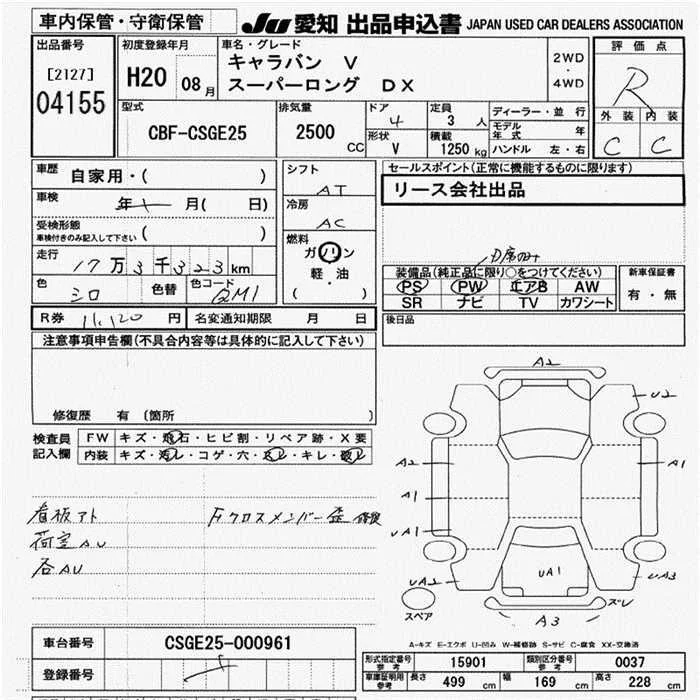 車内保管・守衛保管
JU 愛知 出品申込書 JAPAN USED CAR DEALERS ASSOCIATION
出品番号
[2127]
04155
初度登録年月
H20 08月
車名・グレード
キャラバン V
スーパーロング DX
2WD
・
4WD
評価点
R
外装 内装
C C
型式
CBF-CSGE25
排気量
2500 CC
ドア
4
定員
3 人
形状
V
積載
1250 kg
ディーラー・並行
モデル年式 年
ハンドル 左・右
車歴 自家用・( )
車検 年 月( 日)
受検形態
車検付きのみ記入して下さい ( )
走行 17万3千323km
色 シロ 色替 色コード QM1
シフト
AT
冷房
AC
燃料
ガソリン
軽・油
( )
セールスポイント(正常に機能するものに限ります)
リース会社出品
装備品(純正品に限り○をつけてください)
PS PW エアB AW
SR ナビ TV カワシート
新車保証書
有・無
R券 11,120 円 名変通知期限 月 日
後日品
注意事項申告欄(不具合内容等は具体的に記入して下さい)
修復歴 有 (箇所 )
検査員
記入欄
FW キズ・飛石・ヒビ割・リペア跡・X要
内装 キズ・汚レ・コゲ・穴・スレ・キレ・破レ
看板アト
荷室AU
各AU
Fクロスメンバー歪
A2
U2
A2
A1
A1
UA1
UA2
UA1
UA3
スペア
A3
ズレ
A-キズ E-エクボ U-凹み W-補修跡 S-サビ C-腐食 XX-交換済
車台番号 CSGE25-000961
登録番号
形式指定番号 参考 15901 類別区分番号 参考 0037
車庫証明用 参考 長さ 499 cm 幅 169 cm 高さ 228 cm